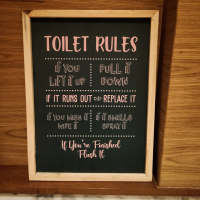 TOILET RULES
if YOU PULL iT
LiFT iT UP DOWN
IF IT RUNS OUT REPLACE IT
if YOU MISS iT if iT SMELLS
WIPE iT SPRAY iT
If You're Finished
Flush It